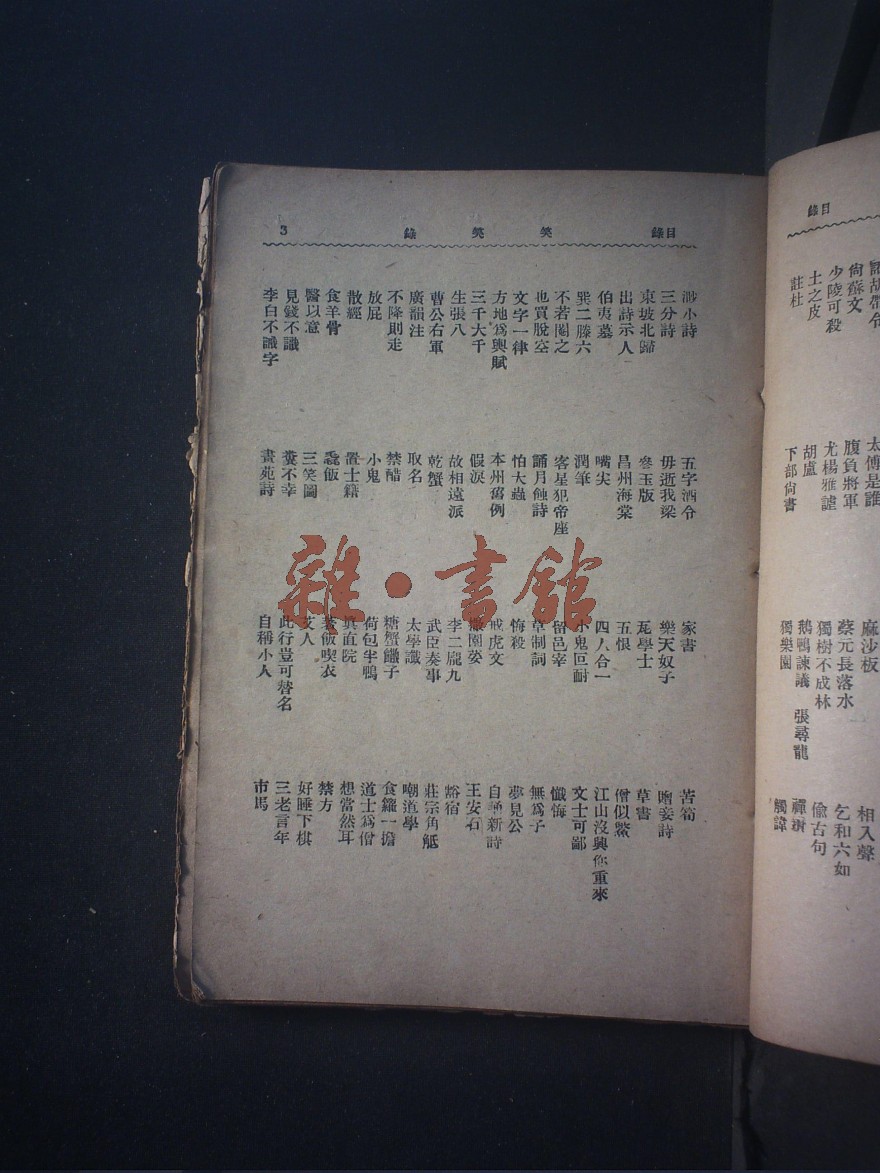 錄目
註杜
士之皮
少陵可殺
尙蘇文
下部尙書
胡盧
尤楊雅謔
腹負將軍
太傅是誰
獨樂園
鵝鴨諫議
張尋龍
獨樹不成林
蔡元長落水
麻沙板
觸諱
禪謝
偸古句
乞和六如
相入聲
錄目
笑笑錄
3
渺小詩
三分詩
東坡北歸
出詩示人
伯夷墓
巽二滕六
不若閣之
也買脫空
文字一律
方地爲輿賦
三千大千
生張八
曹公右軍
廣韻注
不降則走
放屁
散經
食羊骨
醫以意
見錢不識
李白不識字
五字酒令
毋逝我梁
參玉版
昌州海棠
嘴尖
潤筆
客星犯帝座
誦月蝕詩
怕大蟲
本州舊例
假淚
故相遠派
乾蟹
取名
禁醋
小鬼
置士籍
毳飯
三笑圖
糞不幸
畫苑詩
家書
樂天奴子
尨學士
五恨
四人合一
小鬼叵耐
留邑宰
草制詞
悔殺
戒虎文
李二龐九
武臣奏事
太學讖
糖蟹饊子
荷包半鴨
眞直院
著飯喫衣
艾人
此行豈可替名
自稱小人
苦筍
贈妾詩
草書
僧似鱉
江山沒興你重來
文士可鄙
懺悔
無爲子
夢見公
自誦新詩
王安石
謠宿
莊宗角觝
嘲道學
食籠一擔
道士爲僧
想當然耳
禁方
好睡下棋
三老言年
市馬
雜·書館